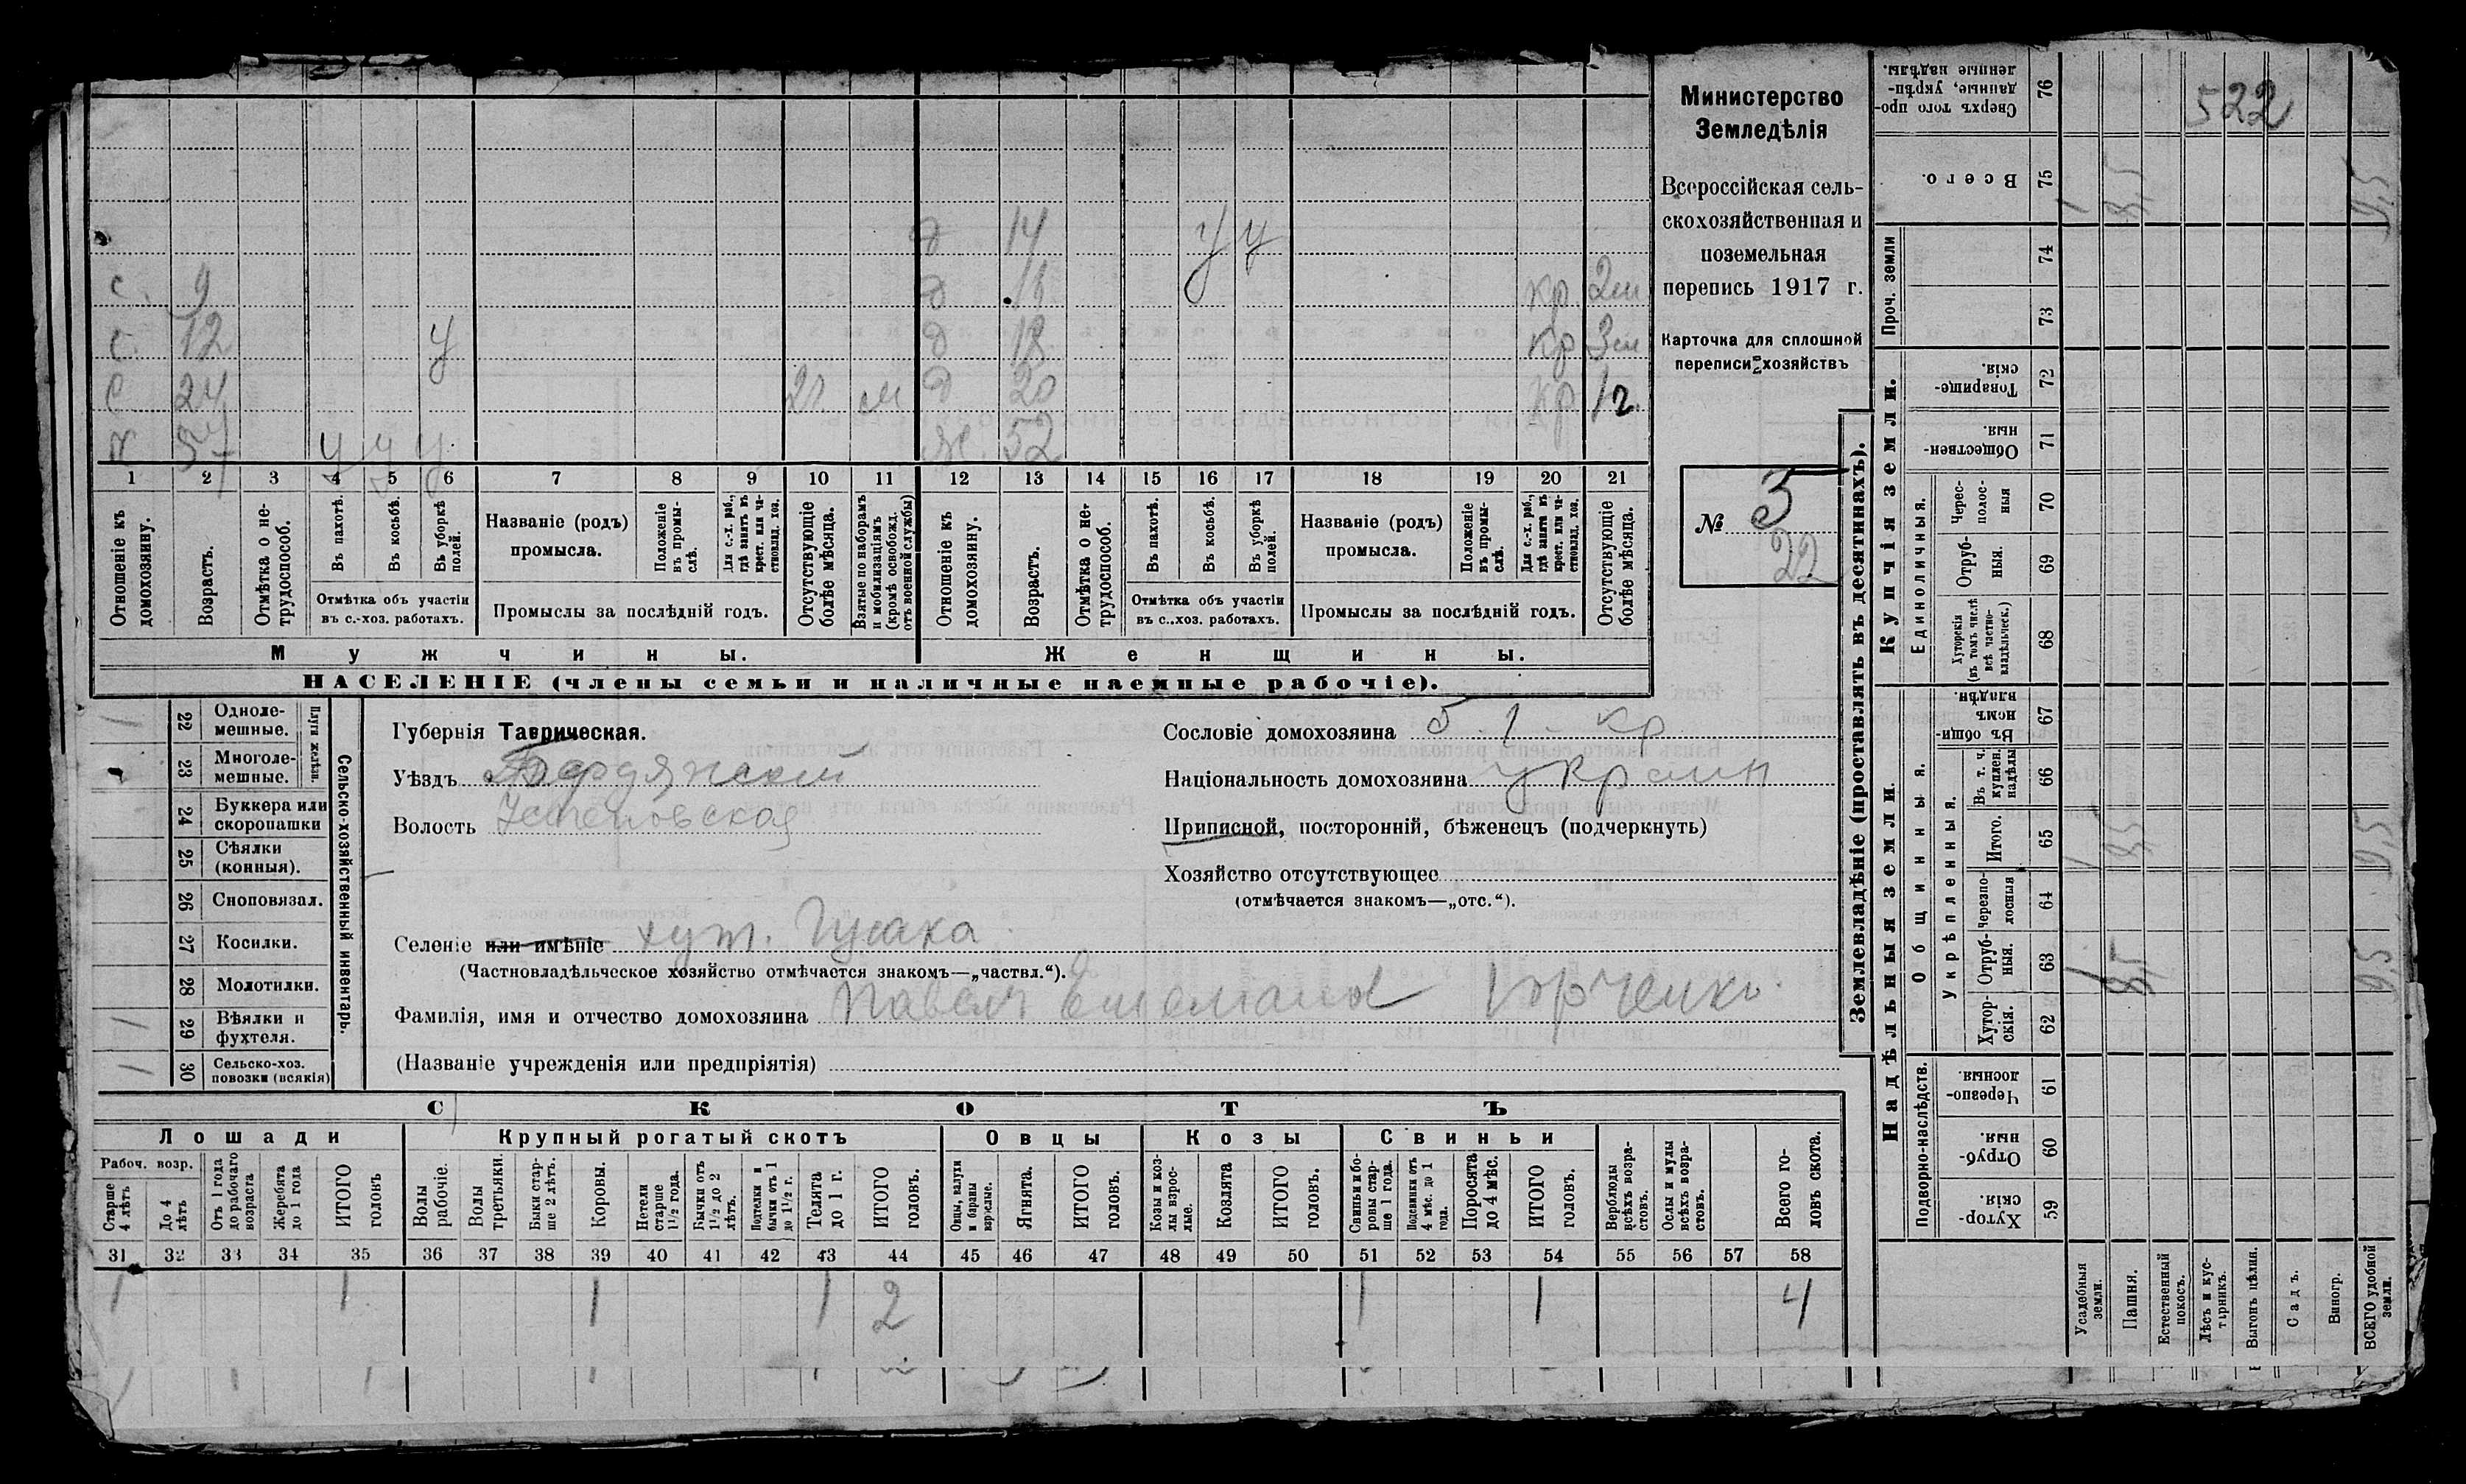 522
Министерство
Земледѣлія
Всероссійская сель-
скохозяйственная и
поземельная
перепись 1917 г.
Карточка для сплошной
переписи хозяйствъ
№ 5
22
д 14 у у
с. 9 д кр 2м
с. 12 у д 18 кр 3м
с 24 2г. м д 20 кр 1г.
х 57 у у у ж. 52
1 2 3 4 5 6 7 8 9 10 11 12 13 14 15 16 17 18 19 20 21
Отношеніе къ домохозяину.
Возрастъ.
Отмѣтка о не-трудоспособ.
Въ пахотѣ.
Въ косьбѣ.
Въ уборкѣ полей.
Отмѣтка объ участіи
въ с.-хоз. работахъ.
Названіе (родъ)
промысла.
Положеніе въ промы-слѣ.
Для с.-х. раб., гдѣ занятъ въ крест. или ча-стновлад. хоз.
Промыслы за послѣдній годъ.
Отсутствующіе болѣе мѣсяца.
Взятые по наборамъ и мобилизаціямъ (кромѣ освобожд. отъ военной службы)
Отношеніе къ домохозяину.
Возрастъ.
Отмѣтка о не-трудоспособ.
Въ пахотѣ.
Въ косьбѣ.
Въ уборкѣ полей.
Отмѣтка объ участіи
въ с..хоз. работахъ.
Названіе (родъ)
промысла.
Положеніе въ промы-слѣ.
Для с.-х. раб., гдѣ занята въ крест. или ча-стновлад. хоз.
Промыслы за послѣдній годъ.
Отсутствующіе болѣе мѣсяца.
Мужчины. Женщины.
НАСЕЛЕНІЕ (члены семьи и наличные наемные рабочіе).
Сельско-хозяйственный инвентарь.
Плуги желѣзн.
1 22 Одноле-мешные.
23 Многоле-мешные.
24 Буккера или скоропашки
25 Сѣялки (конныя).
26 Сноповязал.
27 Косилки.
28 Молотилки.
1 29 Вѣялки и фухтеля.
1 30 Сельско-хоз. повозки (всякія)
Губернія Таврическая.
Уѣздъ Бердянский
Волость
Селеніе или имѣніе хут. Гусака
(Частновладѣльческое хозяйство отмѣчается знакомъ—„частвл.“).
Фамилія, имя и отчество домохозяина Павел Юрченко
(Названіе учрежденія или предпріятія)
Сословіе домохозяина кр
Національность домохозяина украин
Приписной, посторонній, бѣженецъ (подчеркнуть)
Хозяйство отсутствующее
(отмѣчается знакомъ—„отс.“).
СКОТЪ
Лошади Крупный рогатый скотъ Овцы Козы Свиньи
Рабоч. возр.
Старше 4 лѣтъ
До 4 лѣтъ
Отъ 1 года до рабочаго возраста
Жеребята до 1 года
ИТОГО головъ
Волы рабочіе.
Волы третьяки.
Быки стар-ше 2 лѣтъ.
Коровы.
Нетели старше 1½ года.
Бычки отъ 1½ до 2 лѣтъ.
Подтелки и бычки отъ 1 до 1½ г.
Телята до 1 г.
ИТОГО головъ.
Овцы, валухи и бараны взрослые.
Ягнята.
ИТОГО головъ.
Козы и коз-лы взрос-лые.
Козлята
ИТОГО головъ.
Свиньи и бо-ровы стар-ше 1 года.
Подсвинки отъ 4 мѣс. до 1 года.
Поросята до 4 мѣс.
ИТОГО головъ.
Верблюды всѣхъ возра-стовъ.
Ослы и мулы всѣхъ возра-стовъ.
Всего го-ловъ скота.
31 32 33 34 35 36 37 38 39 40 41 42 43 44 45 46 47 48 49 50 51 52 53 54 55 56 57 58
1 1 1 1 2 1 1 4
Землевладѣніе (проставлять въ десятинахъ).
Надѣльныя земли. Купчія земли. Проч. земли
Подворно-наслѣдств. Общинныя. Единоличныя.
Укрѣпленныя.
59 Хутор-скія.
60 Отруб-ныя.
61 Черезпо-лосныя.
62 Хутор-скія.
63 Отруб-ныя. 1 8,5 9,5
64 Черезпо-лосныя
65 Итого. 1 8,5 9,5
66 Въ т. ч. куплен. надѣлы
67 Въ общин-номъ владѣн.
68 Хуторскія (въ томъ числѣ всѣ частно-владѣльческ.)
69 Отруб-ныя.
70 Черес-полос-ныя
71 Обществен-ныя.
72 Товарище-скія.
73
74
75 Всего. 1 8,5 9,5
76 Сверхъ того про-данные, укрѣп-ленные надѣлы.
Усадебныя земли.
Пашня.
Естественный покосъ.
Лѣсъ и кус-тарникъ.
Выгонъ цѣлин.
Садъ.
Виногр.
ВСЕГО удобной земли.